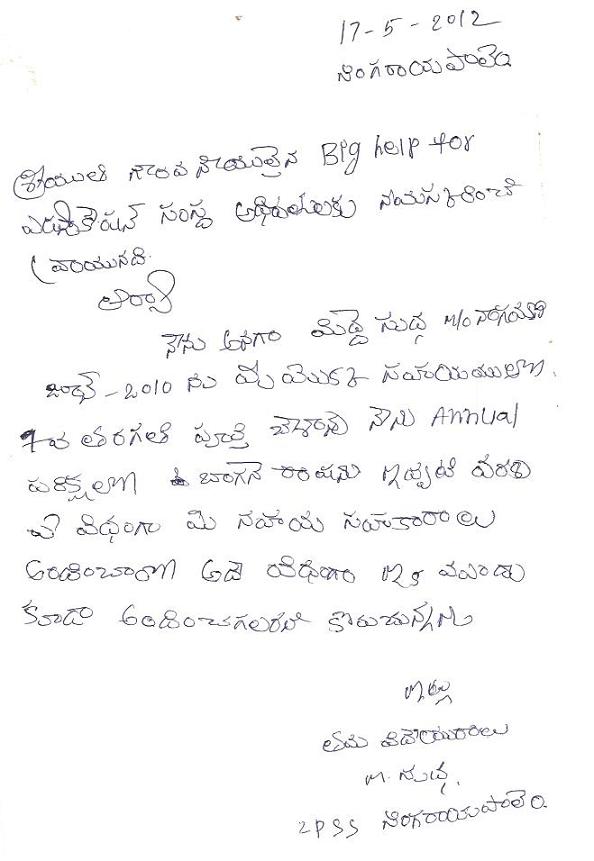 17-5-2012
సింగరాయపాలెం
శ్రీయుత గౌరవనీయులైన Big help for
ఎడ్యుకేషన్ సంస్థ అధిపతులకు నమస్కరించి
వ్రాయునది.
ఆర్యా
నేను అనగా మిద్దె సుధ
జూన్-2010 ను మీ యొక్క సహాయములతో
7వ తరగతి పూర్తి చేశాను నేను Annual
పరిక్షలు బాగానె రాసాను ఇప్పటి వరకు
ఏ విధంగా మి సహాయ సహకారాలు
అందించారో అదే విధంగా ఇక
కూడా అందించగలరని కోరుచున్నాను
ఇట్లు
తమ విదేయురాలు
M. సుధ.
ZPSS సింగరాయపాలెం.